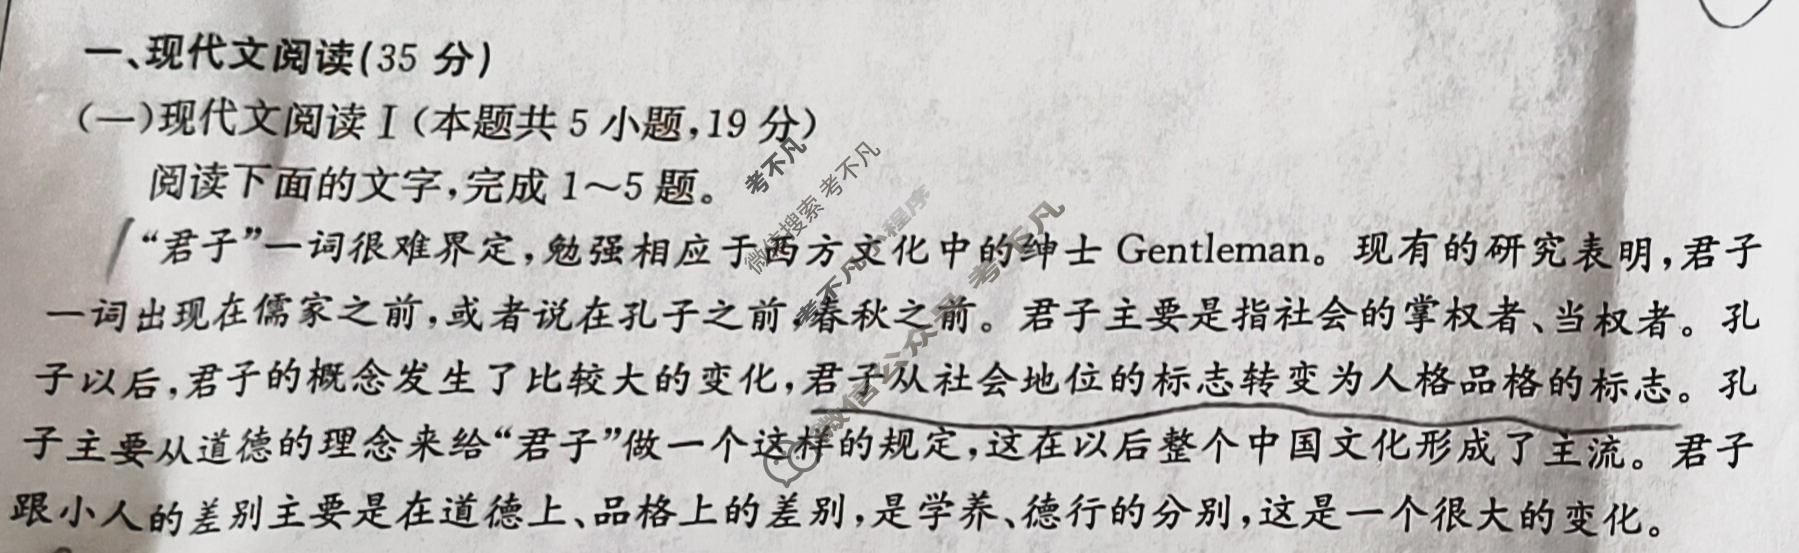 一、现代文阅读(35 分)
(一)现代文阅读 I (本题共 5 小题,19 分)
阅读下面的文字,完成 1～5 题。
“君子”一词很难界定,勉强相应于西方文化中的绅士 Gentleman。现有的研究表明,君子
一词出现在儒家之前,或者说在孔子之前,春秋之前。君子主要是指社会的掌权者、当权者。孔
子以后,君子的概念发生了比较大的变化,君子从社会地位的标志转变为人格品格的标志。孔
子主要从道德的理念来给“君子”做一个这样的规定,这在以后整个中国文化形成了主流。君子
跟小人的差别主要是在道德上、品格上的差别,是学养、德行的分别,这是一个很大的变化。
考不凡
微信搜索 考不凡
考不凡 小程序
微信公众号 考不凡